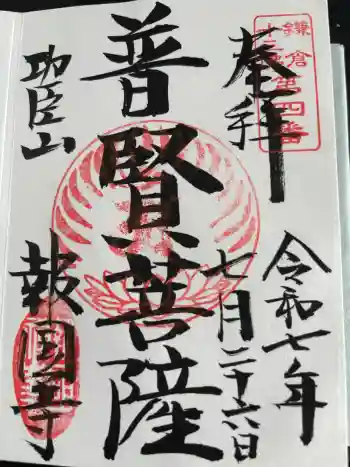 奉拝
鎌倉
十三佛第四番
令和七年
七月二十六日
普賢菩薩
功臣山
報国寺